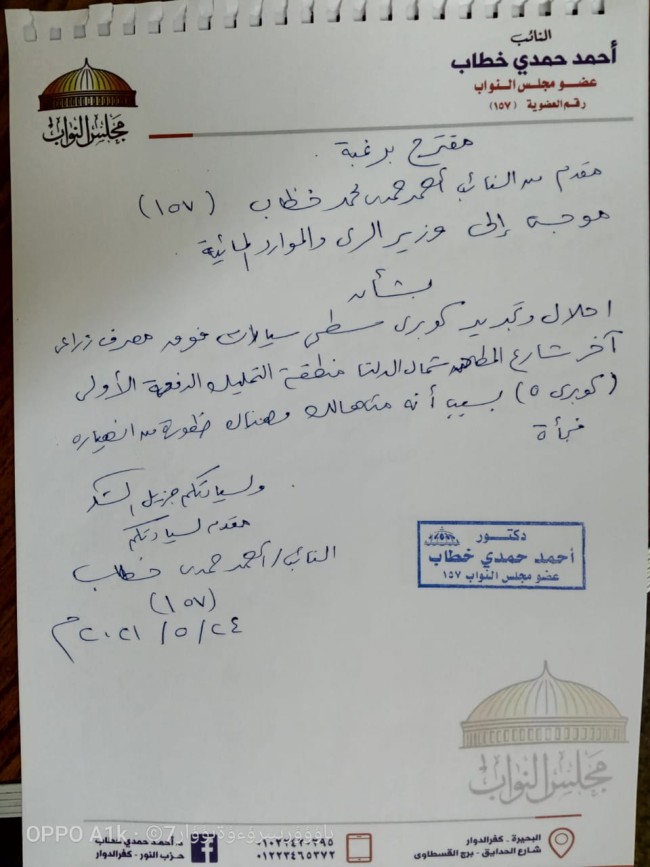 النائب
أحمد حمدي خطاب
عضو مجلس النواب
رقم العضوية (١٥٧)
مجلس النواب
مقترح برغبة .
مقدم من النائب أحمد حمدى محمد خطاب (١٥٧)
موجه إلى وزير الرى والموارد المائية .
بشأن
احلال وتجديد كوبرى سطحى سيارات فوق مصرف زراعى
آخر شارع شمال الدلتا منطقة التمليك الدفعة الأولى
(كوبرى ٥) بسبب أنه متهالك وهناك خطورة من انهياره
فجأة
ولسيادتكم جزيل الشكر
مقدم لسيادتكم
النائب / أحمد حمدى خطاب
(١٥٧)
٢٤ / ٥ / ٢٠٢١ م
دكتور
أحمد حمدي خطاب
عضو مجلس النواب ١٥٧
مجلس النواب
البحيرة . كفرالدوار
شارع الحدايق - برج القسطاوى
٠١٠٢٢٤٢٠٢٩٥
٠١٢٢٢٤٦٥٣٧٢
د. أحمد حمدي خطاب
حزب النور - كفرالدوار
OPPO A1k